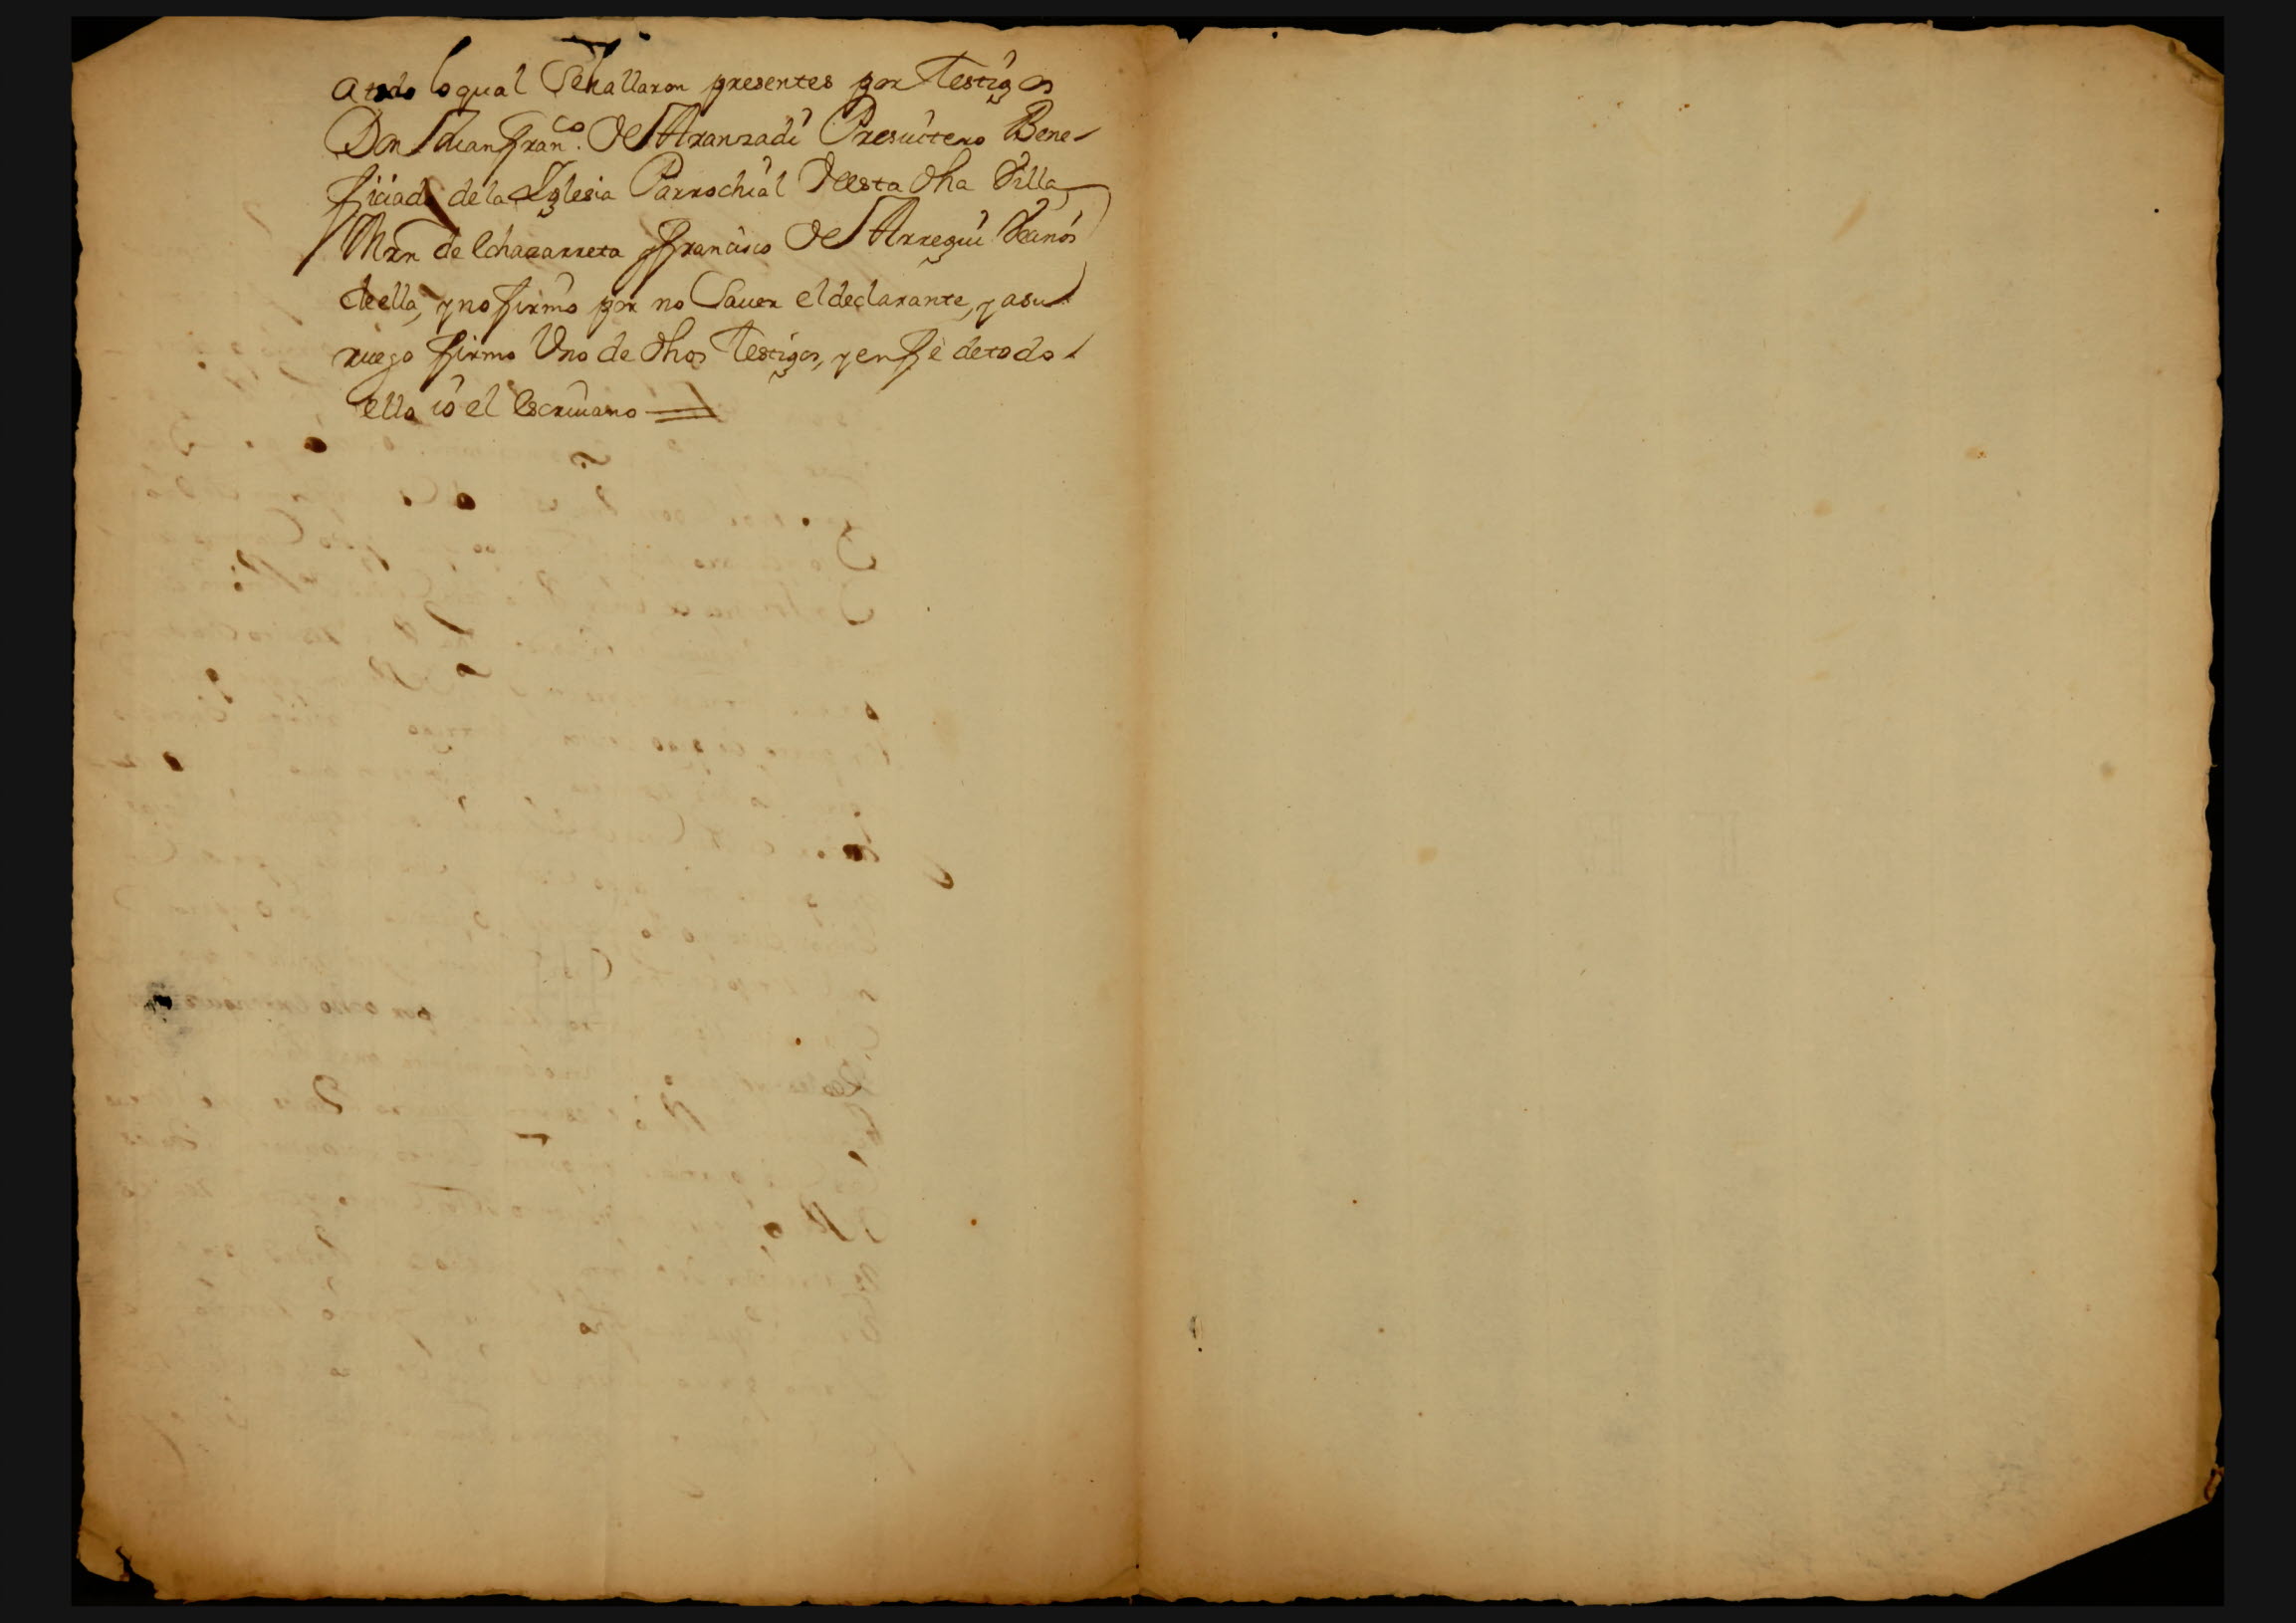 atodo loqual Sehallaron presentes por Testigos
Don Juan Fran.co De Aranzadi Presuitero Bene-
ficiado de la Iglesia Parrochial Deesta dha Villa
Mrn de Echagarreta y Francisco De Arregui Vecinos
de ella, y no firmo por no Sauer el declarante, y asu
ruego firmo Uno de dhos Testigos, y en fe de todo
ello io el Escriuano